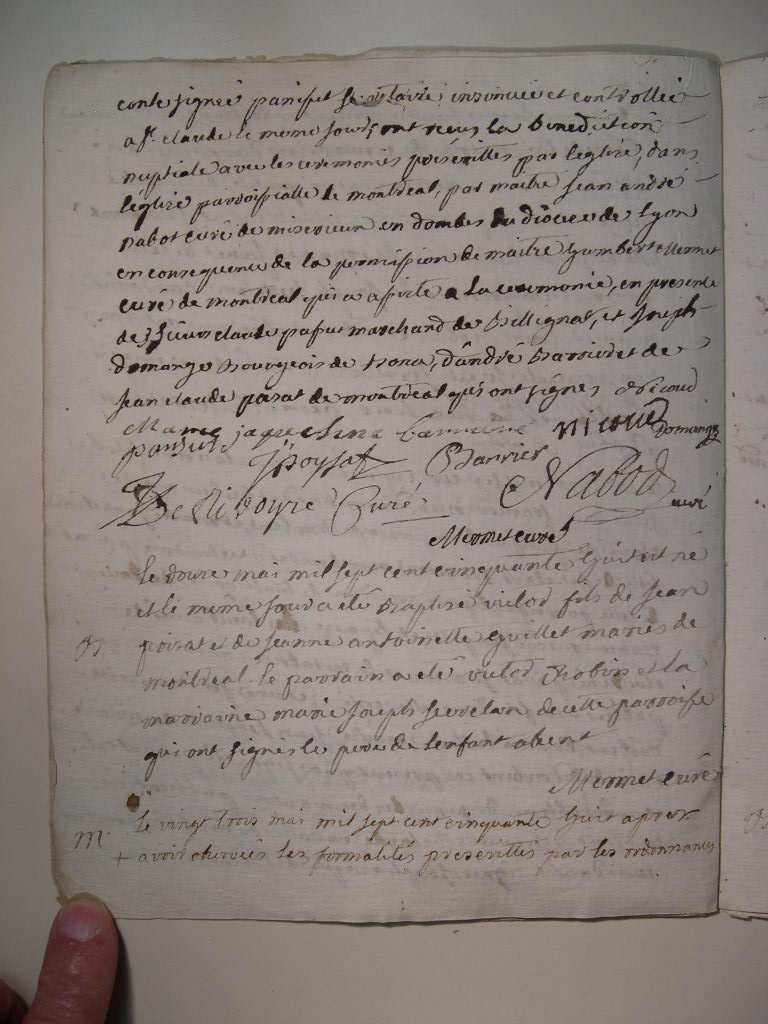 conte signeé par
insinuée et controllée
a st. claude le meme jour, ont recus la benediction
nuptiale avec les ceremonies préscrittes par leglise, dans
léglise parroissialle de montréal, par maitre jean andré
nabot curé de miserieux en dombes du diocese de Lyon
en consequence de la permission de maitre humbert Mermet
curé de montréal qui a assisté a la ceremonie, en presence
de claude paput marchand de Bellignat, et Joseph
domange Bourgeois de dandré Barrier et de
jean claude parat de montréal qui ont signes
nicoud
domange
Barrier
Nabod
curé
curé
Mermet curé
le douze mai mil sept cent cinquante huit est né
et le meme jour a eté Baptisé victor fils de Jean
B
poirat et de jeanne antoinette Guillet mariés de
montréal le parrain a eté victor Robin et la
marraine marie joseph de cette parroisse
qui ont signés le pere de lenfant absent
Mermet curé
M
le vingt trois mai mil sept cent cinquante huit apres
+ avoir les formalités prescrittes par les ordonnances